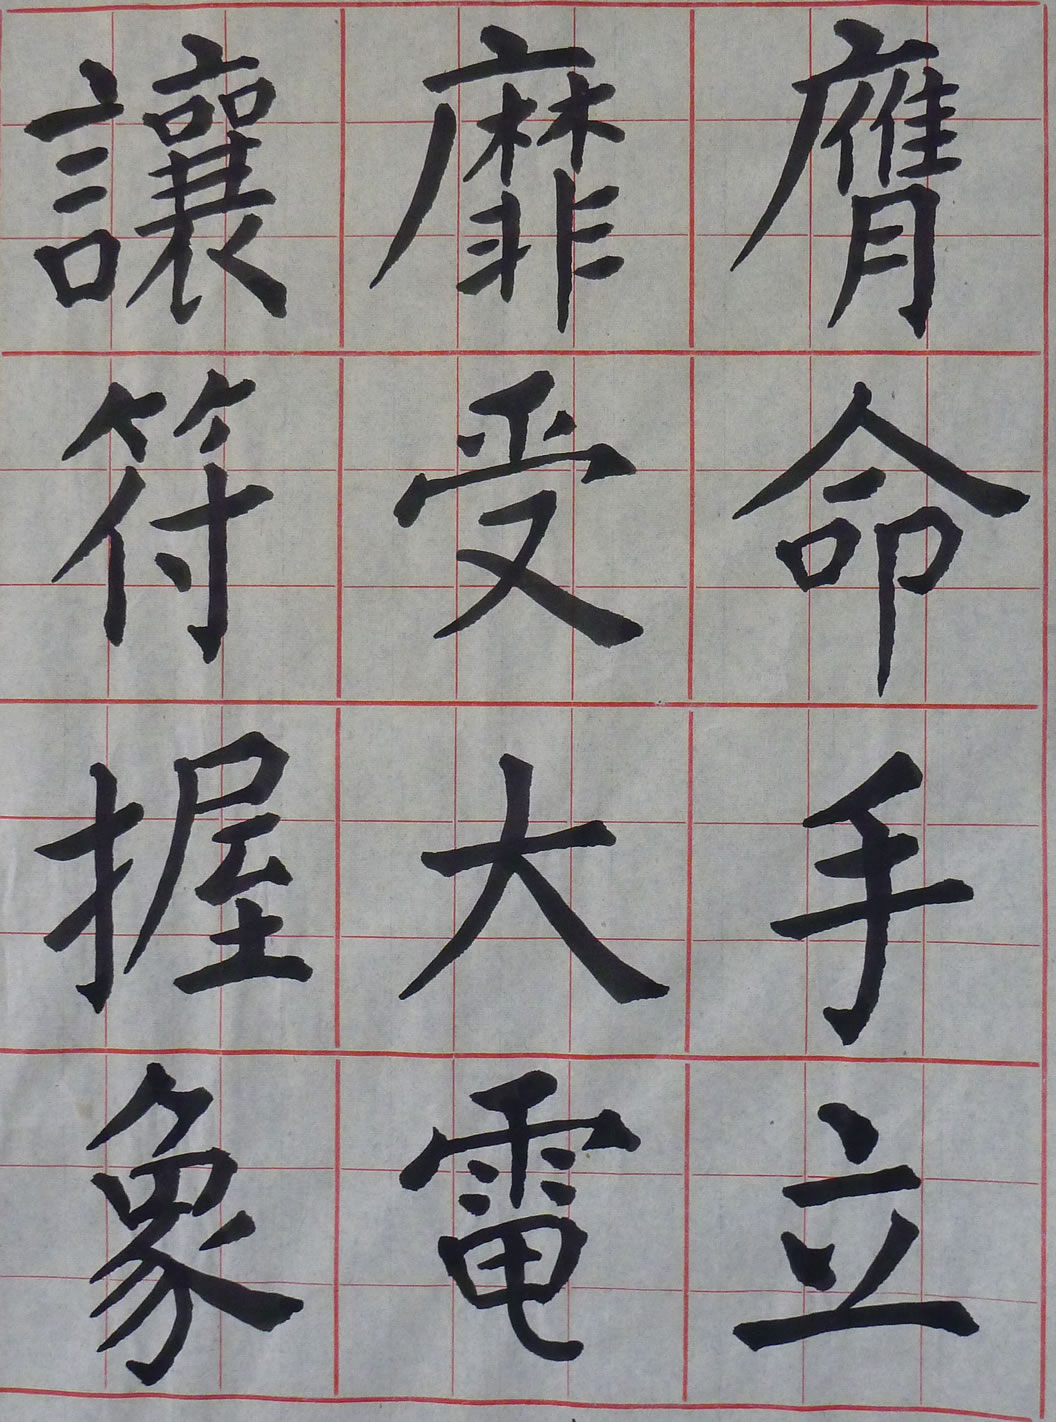 讓靡膺
符受命
握大手
象電立